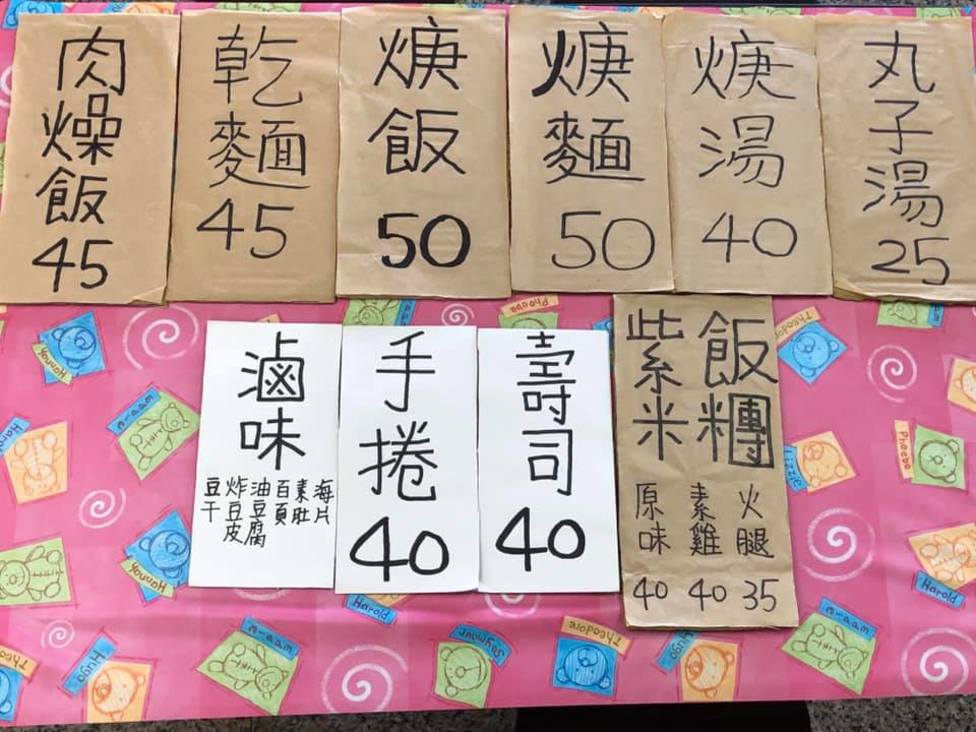 肉燥飯
45
乾麵
45
焿飯
50
焿麵
50
焿湯
40
丸子湯
25
滷味
豆干
炸豆皮
油豆腐
百頁
素肚
海片
手捲
40
壽司
40
紫米
飯糰
原味
40
素雞
40
火腿
35
Phoebe
Theodore
Hannah
Harold
Lizzie
Phoebe
Hannah
Harold
Harold
Theodore
Hugo
Seymour
Theodore
Hugo